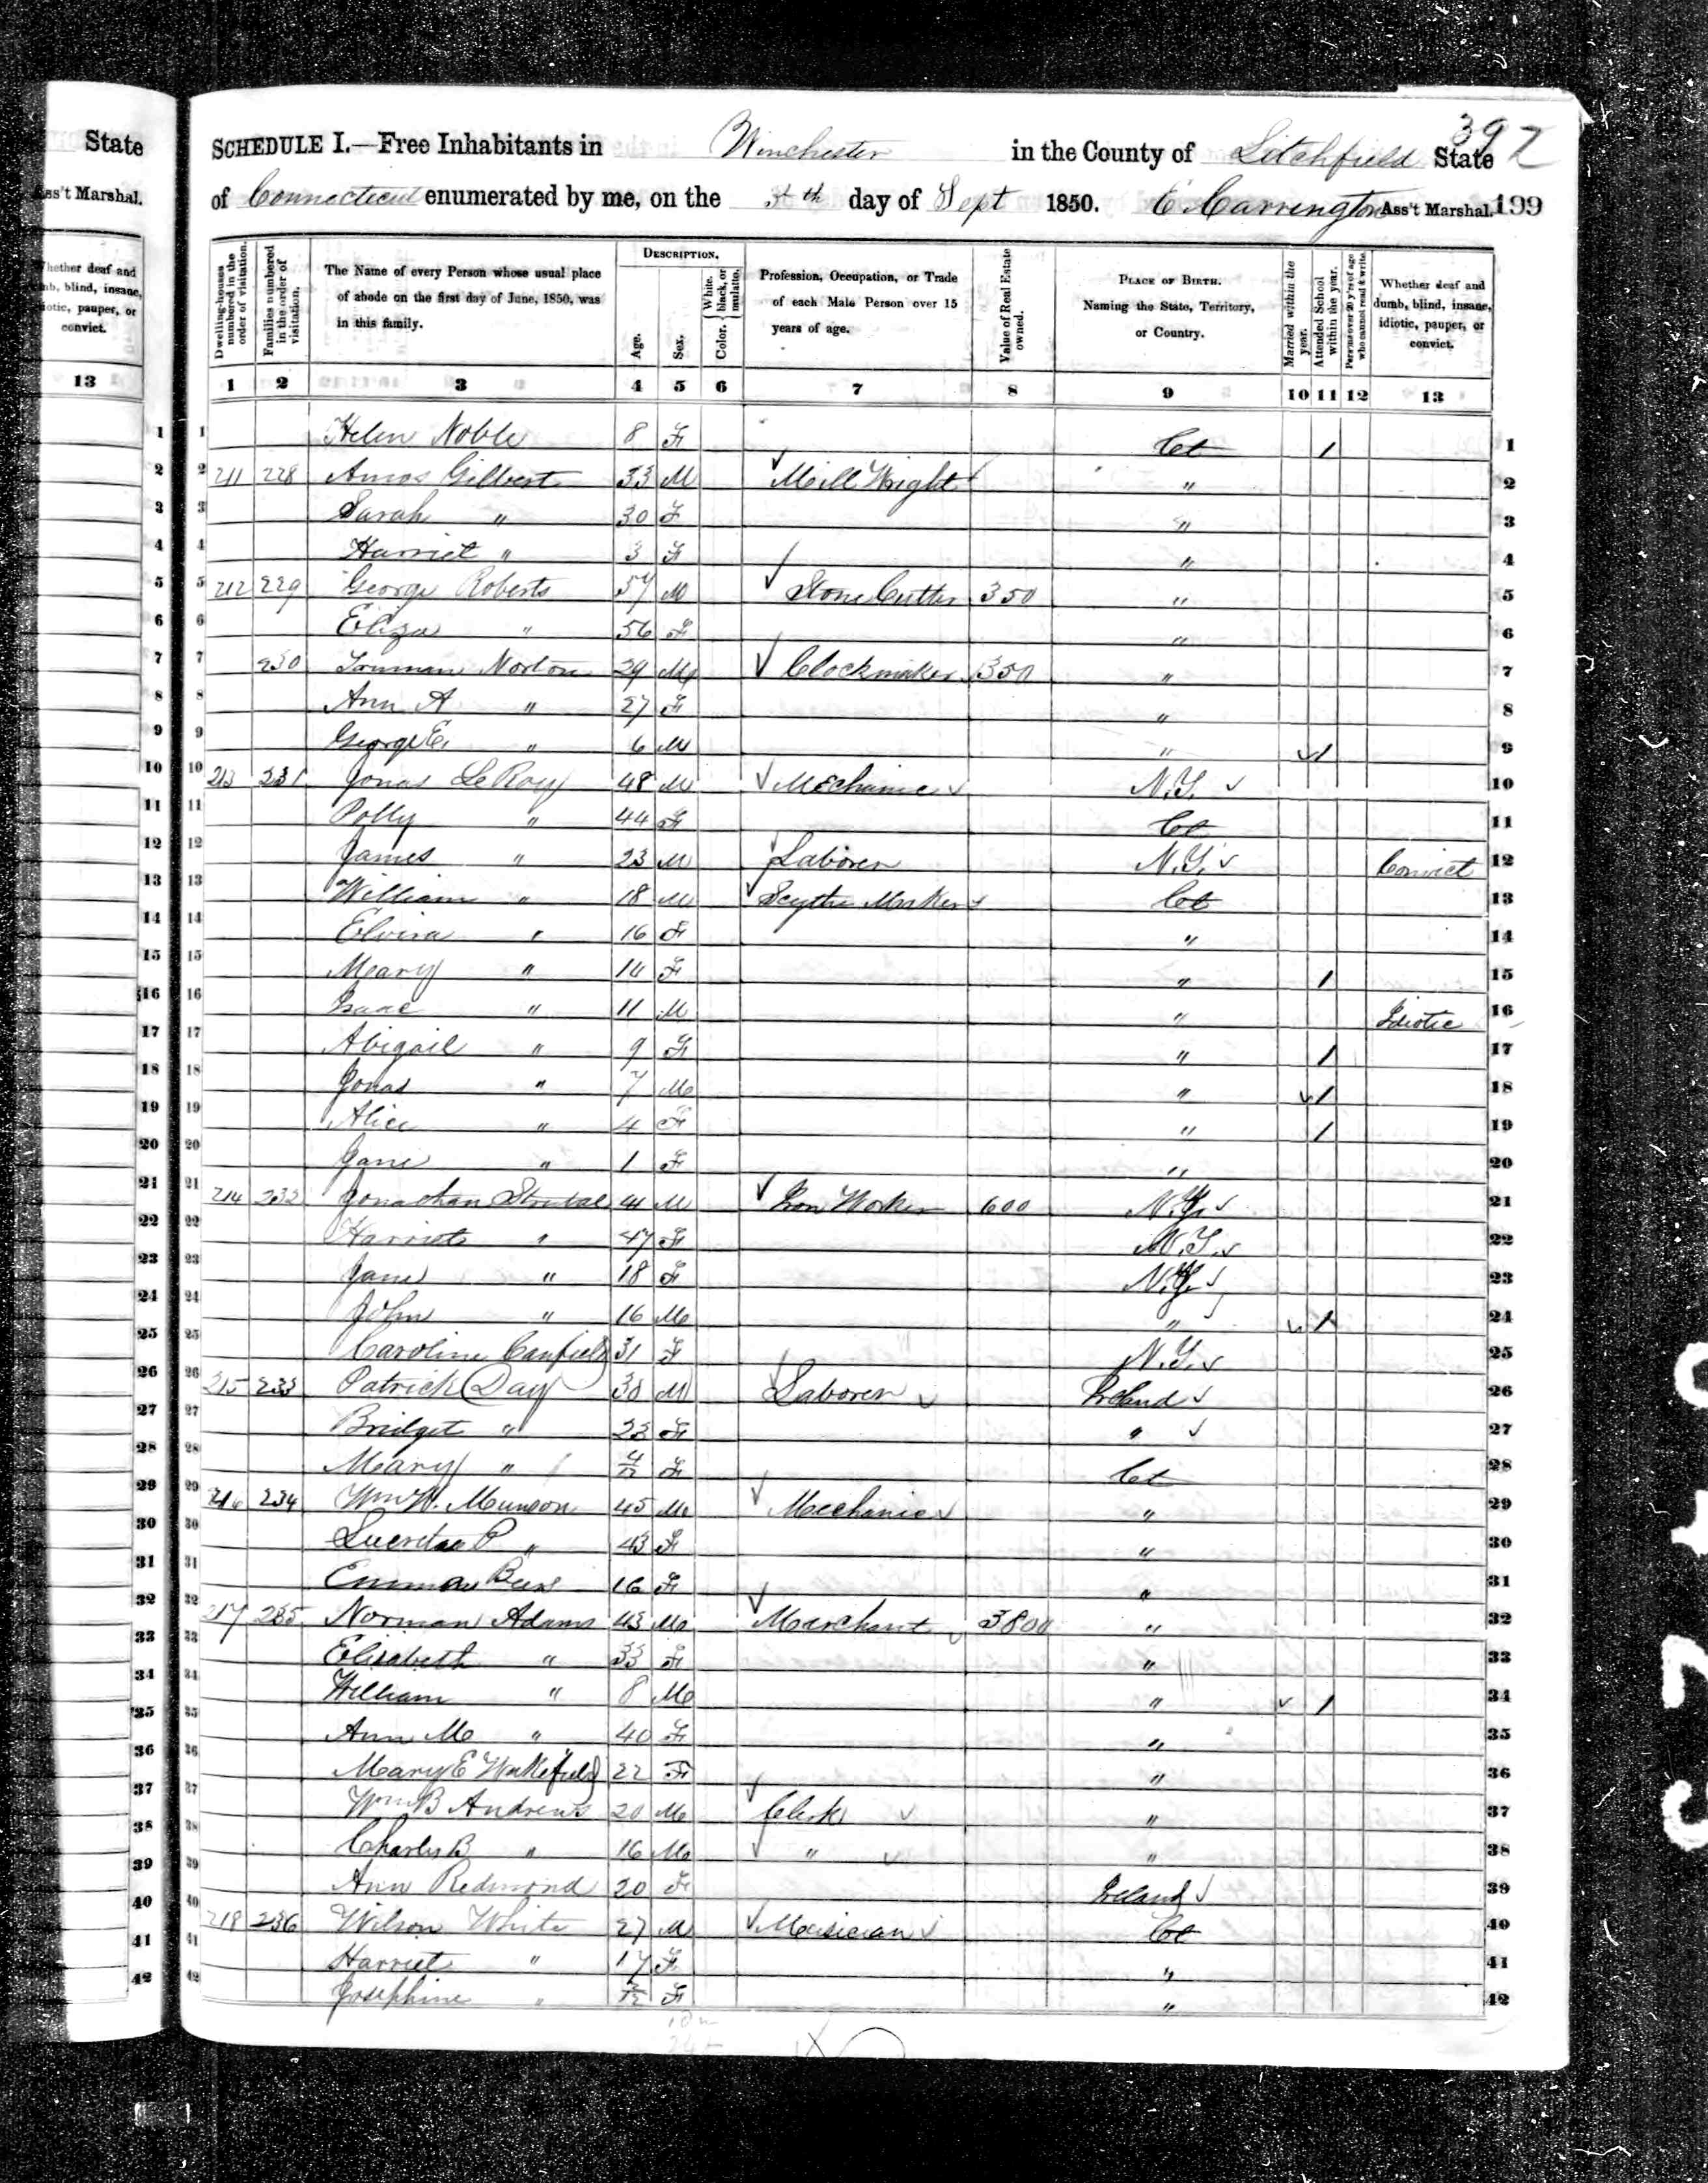 State
Ass't Marshal.
Whether deaf and dumb, blind, insane, idiotic, pauper, or convict.
13
392
SCHEDULE I.—Free Inhabitants in Winchester in the County of Litchfield State
of Connecticut enumerated by me, on the 5th day of Sept 1850. E. Carrington Ass't Marshal. 199
Dwelling-houses numbered in the order of visitation.
Families numbered in the order of visitation.
The Name of every Person whose usual place of abode on the first day of June, 1850, was in this family.
DESCRIPTION.
Age.
Sex.
Color, { White, black, or mulatto.
Profession, Occupation, or Trade of each Male Person over 15 years of age.
Value of Real Estate owned.
PLACE OF BIRTH. Naming the State, Territory, or Country.
Married within the year.
Attended School within the year.
Persons over 20 y'rs of age who cannot read & write.
Whether deaf and dumb, blind, insane, idiotic, pauper, or convict.
1 2 3 4 5 6 7 8 9 10 11 12 13
1 Helen Noble 8 F Ct / 1
2 211 228 Amos Gilbert 33 M Mill Wright " 2
3 Sarah " 30 F " 3
4 Harriet " 3 F " 4
5 212 229 George Roberts 57 M Stone Cutter 350 " 5
6 Eliza " 56 F " 6
7 230 Truman Norton 29 M Clockmaker 350 " 7
8 Ann A " 27 F " 8
9 George E. " 6 M " / 9
10 213 231 Jonas LeRoy 48 M Mechanic N.Y. 10
11 Polly " 44 F Ct 11
12 James " 23 M Laborer N.Y. Convict 12
13 William " 18 M Scythe Maker Ct 13
14 Elvira " 16 F " 14
15 Mary " 14 F " / 15
16 Isaac " 11 M " Idiotic 16
17 Abigail " 9 F " / 17
18 Jonas " 7 M " / 18
19 Alice " 4 F " / 19
20 Jane " 1 F " 20
21 214 232 Jonathan M Iron Worker 600 21
22 Harriet " 47 F 22
23 Jane " 18 F 23
24 John " 16 M " / 24
25 Caroline Canfield 31 F 25
26 215 233 Patrick Day 30 M Laborer Ireland 26
27 Bridget " 23 F " 27
28 Mary " 4/12 F Ct 28
29 216 234 Wm W. Munson 45 M Mechanic " 29
30 Lucretia P " 43 F " 30
31 Emma 16 F " 31
32 217 235 Norman Adams 43 M Marchant 3800 " 32
33 Elisabeth " 33 F " 33
34 William " 8 M " / 34
35 Ann M " 40 F " 35
36 Mary E Wakefield 22 F " 36
37 Wm B Andrews 20 M Clerk " 37
38 Charles B " 16 M " " 38
39 Ann Redmond 20 F Ireland 39
40 218 236 Wilson White 27 M Musician Ct 40
41 Harriet " 17 F " 41
42 Josephine " F " 42